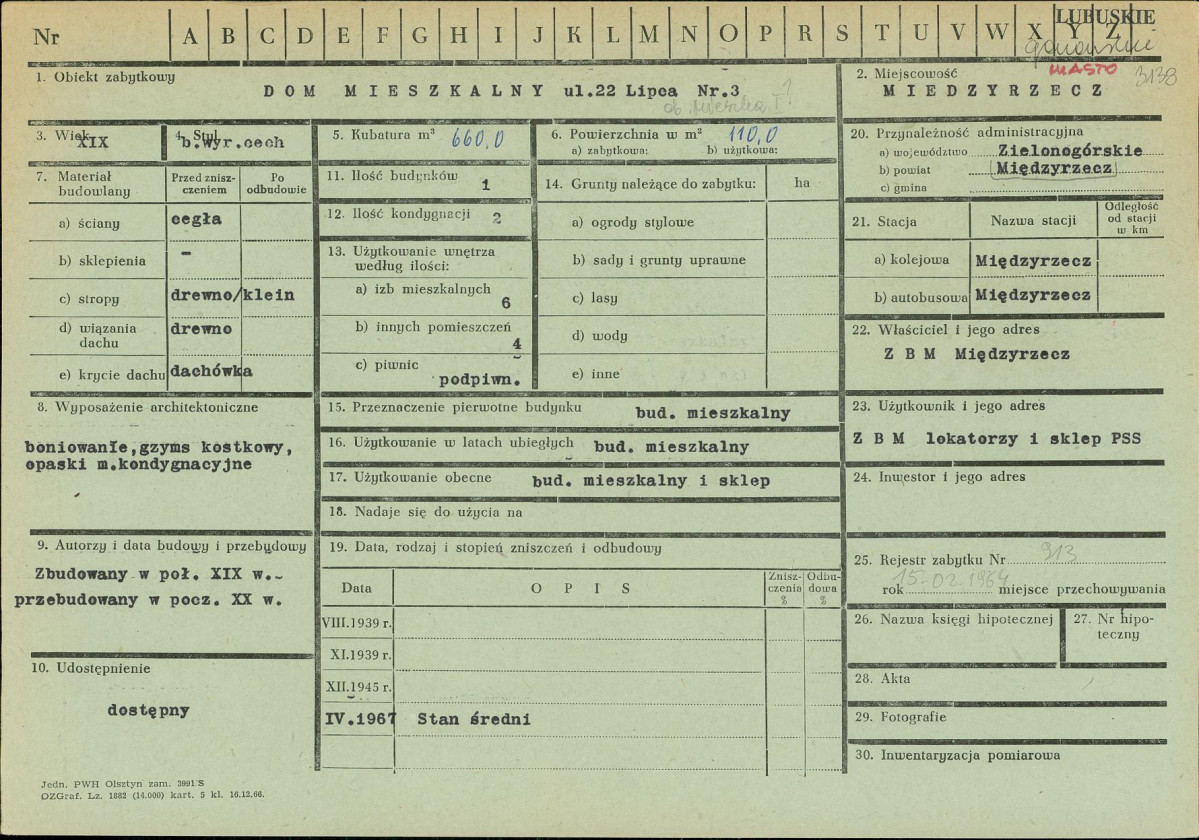 Nr A B C D E F G H I J K L M N O P R S T U V W X Y Z
LUBUSKIE
MIASTO 3138
1. Obiekt zabytkowy
DOM MIESZKALNY ul.22 Lipca Nr.3
ob. Mieszka I?
2. Miejscowość
MIEDZYRZECZ
3. Wiek
XIX
4. Styl
b.wyr.cech
5. Kubatura m³ 660,0
6. Powierzchnia w m² 110,0
a) zabytkowa: b) użytkowa:
7. Materiał budowlany
Przed zniszczeniem
Po odbudowie
a) ściany cegła
b) sklepienia –
c) stropy drewno/klein
d) wiązania dachu drewno
e) krycie dachu dachówka
8. Wyposażenie architektoniczne
boniowanie,gzyms kostkowy,
opaski m.kondygnacyjne
9. Autorzy i data budowy i przebudowy
Zbudowany w poł. XIX w.-
przebudowany w pocz. XX w.
10. Udostępnienie
dostępny
11. Ilość budynków 1
12. Ilość kondygnacji 2
13. Użytkowanie wnętrza
według ilości:
a) izb mieszkalnych
6
b) innych pomieszczeń
4
c) piwnic
podpiwn.
14. Grunty należące do zabytku: ha
a) ogrody stylowe
b) sady i grunty uprawne
c) lasy
d) wody
e) inne
15. Przeznaczenie pierwotne budynku bud. mieszkalny
16. Użytkowanie w latach ubiegłych bud. mieszkalny
17. Użytkowanie obecne bud. mieszkalny i sklep
18. Nadaje się do użycia na
19. Data, rodzaj i stopień zniszczeń i odbudowy
Data OPIS Zniszczenia % Odbudowa %
VIII.1939 r.
XI.1939 r.
XII.1945 r.
IV.1967 Stan średni
20. Przynależność administracyjna
a) województwo Zielonogórskie
b) powiat Międzyrzecz
c) gmina
21. Stacja Nazwa stacji Odległość od stacji w km
a) kolejowa Międzyrzecz
b) autobusowa Międzyrzecz
22. Właściciel i jego adres
Z B M Międzyrzecz
23. Użytkownik i jego adres
Z B M lokatorzy i sklep PSS
24. Inwestor i jego adres
25. Rejestr zabytku Nr 913
rok 15.02.1964 miejsce przechowywania
26. Nazwa księgi hipotecznej
27. Nr hipoteczny
28. Akta
29. Fotografie
30. Inwentaryzacja pomiarowa
Jedn. PWH Olsztyn zam. 3991 S
OZGraf. Lz. 1882 (14.000) kart. 5 kl. 16.12.66.